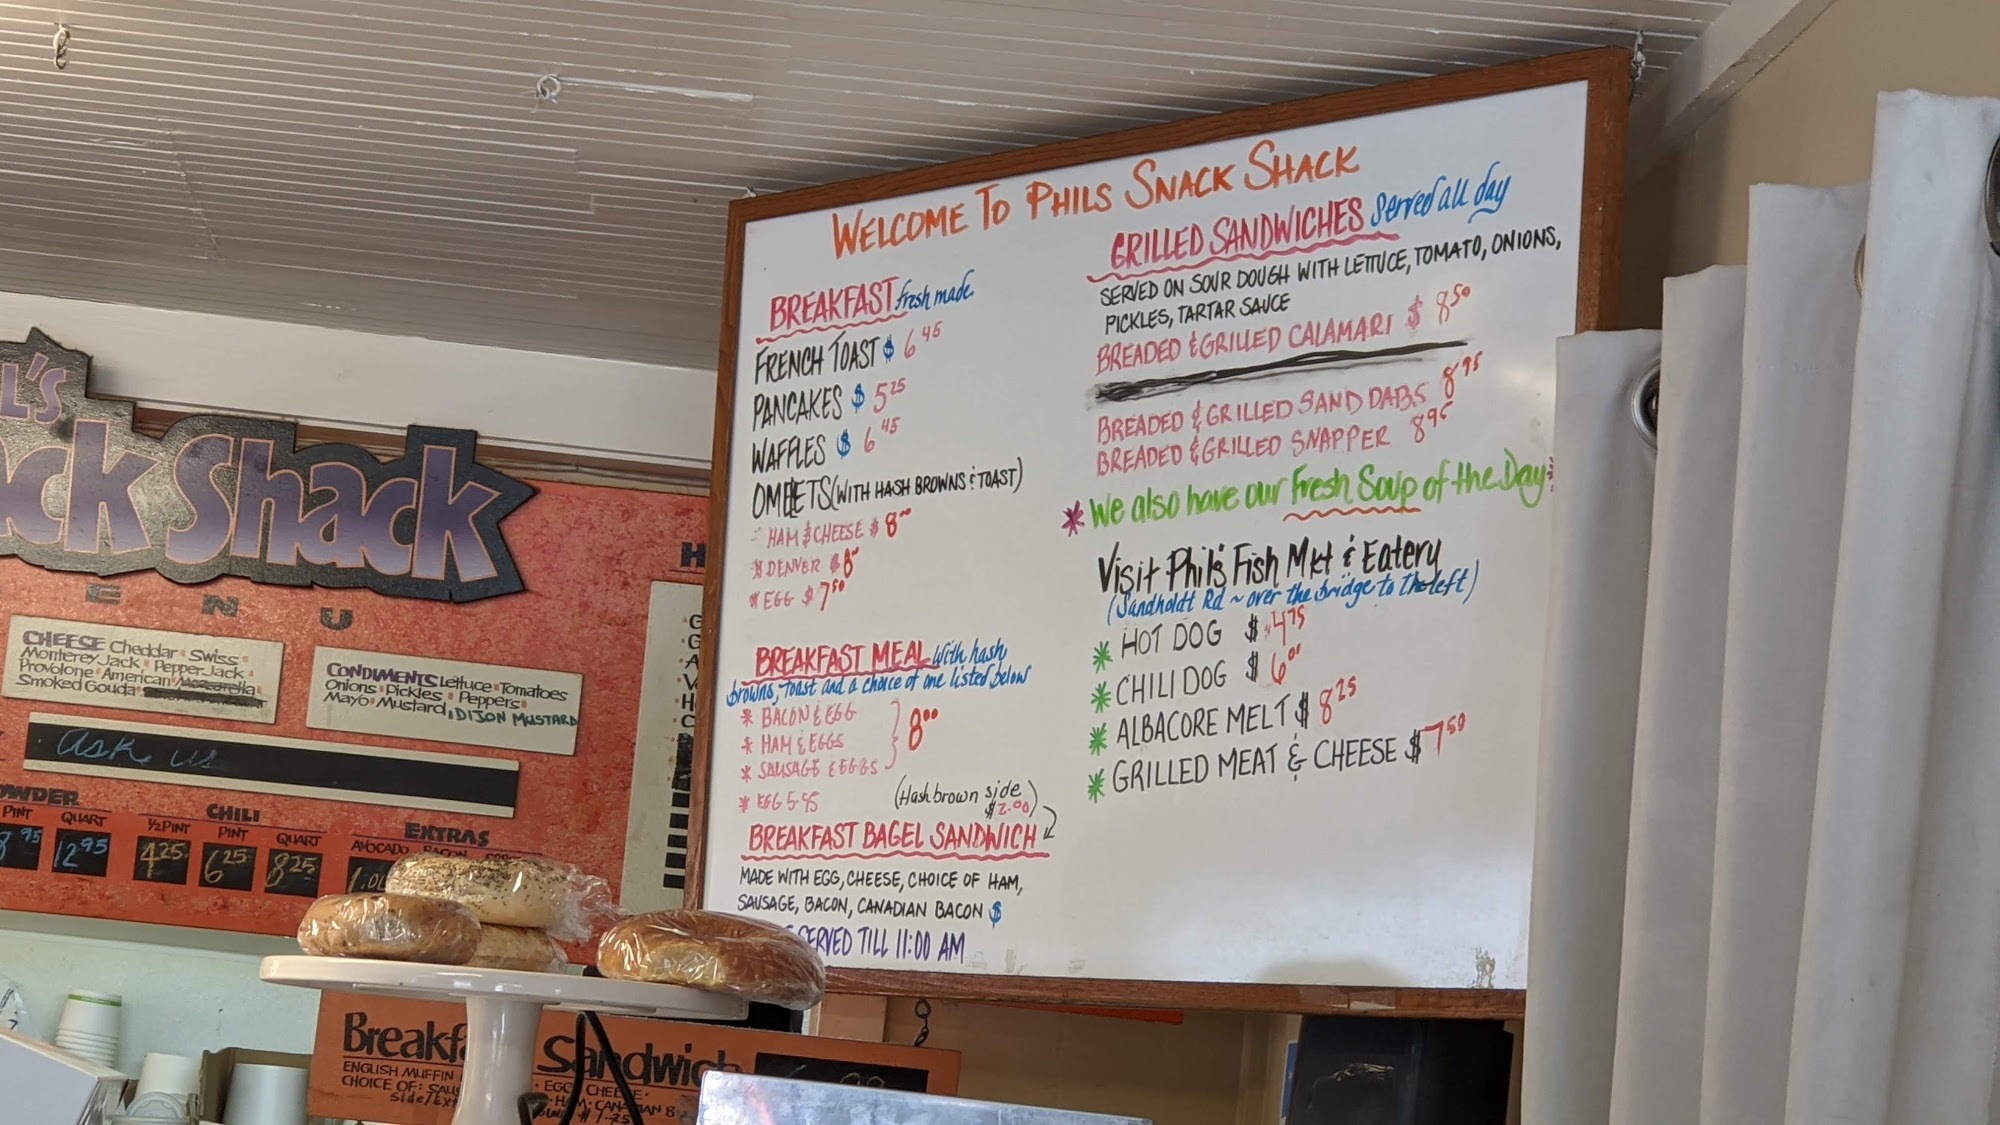 WELCOME TO PHILS SNACK SHACK
BREAKFAST fresh made
FRENCH TOAST $ 6 45
PANCAKES $ 5 25
WAFFLES $ 6 45
OMELETS (WITH HASH BROWNS & TOAST)
HAM & CHEESE $ 8 00
* DENVER $ 8 00
* EGG $ 7 50
BREAKFAST MEAL with hash
browns, toast and a choice of one listed below
* BACON & EGG
* HAM & EGGS
* SAUSAGE & EGGS
8 00
* EGG 5.95
(Hash brown side
$2.00)
BREAKFAST BAGEL SANDWICH
MADE WITH EGG, CHEESE, CHOICE OF HAM,
SAUSAGE, BACON, CANADIAN BACON $
SERVED TILL 11:00 AM
GRILLED SANDWICHES Served all day
SERVED ON SOUR DOUGH WITH LETTUCE, TOMATO, ONIONS,
PICKLES, TARTAR SAUCE
BREADED & GRILLED CALAMARI $ 8 50
BREADED & GRILLED SAND DABS 8 95
BREADED & GRILLED SNAPPER 8 95
* We also have our Fresh Soup of the Day *
Visit Phil's Fish Mkt & Eatery
(Sandholdt Rd ~ over the bridge to the left)
* HOT DOG $ 4 75
* CHILI DOG $ 6 00
* ALBACORE MELT $ 8 25
* GRILLED MEAT & CHEESE $ 7 50
L'S
ack Shack
E N U
CHEESE Cheddar Swiss
Monterey Jack Pepper Jack
Provolone American Mozzarella
Smoked Gouda
CONDIMENTS Lettuce Tomatoes
Onions Pickles Peppers
Mayo Mustard, DIJON MUSTARD
ask us
OWDER
PINT QUART
8 95 12 95
CHILI
1/2 PINT PINT QUART
4 25 6 25 8 25
EXTRAS
AVOCADO BACON
1.00
H
Breakf Sandwich
ENGLISH MUFFIN
CHOICE OF: SAUS
EGG CHEESE
HAM CANADIAN B